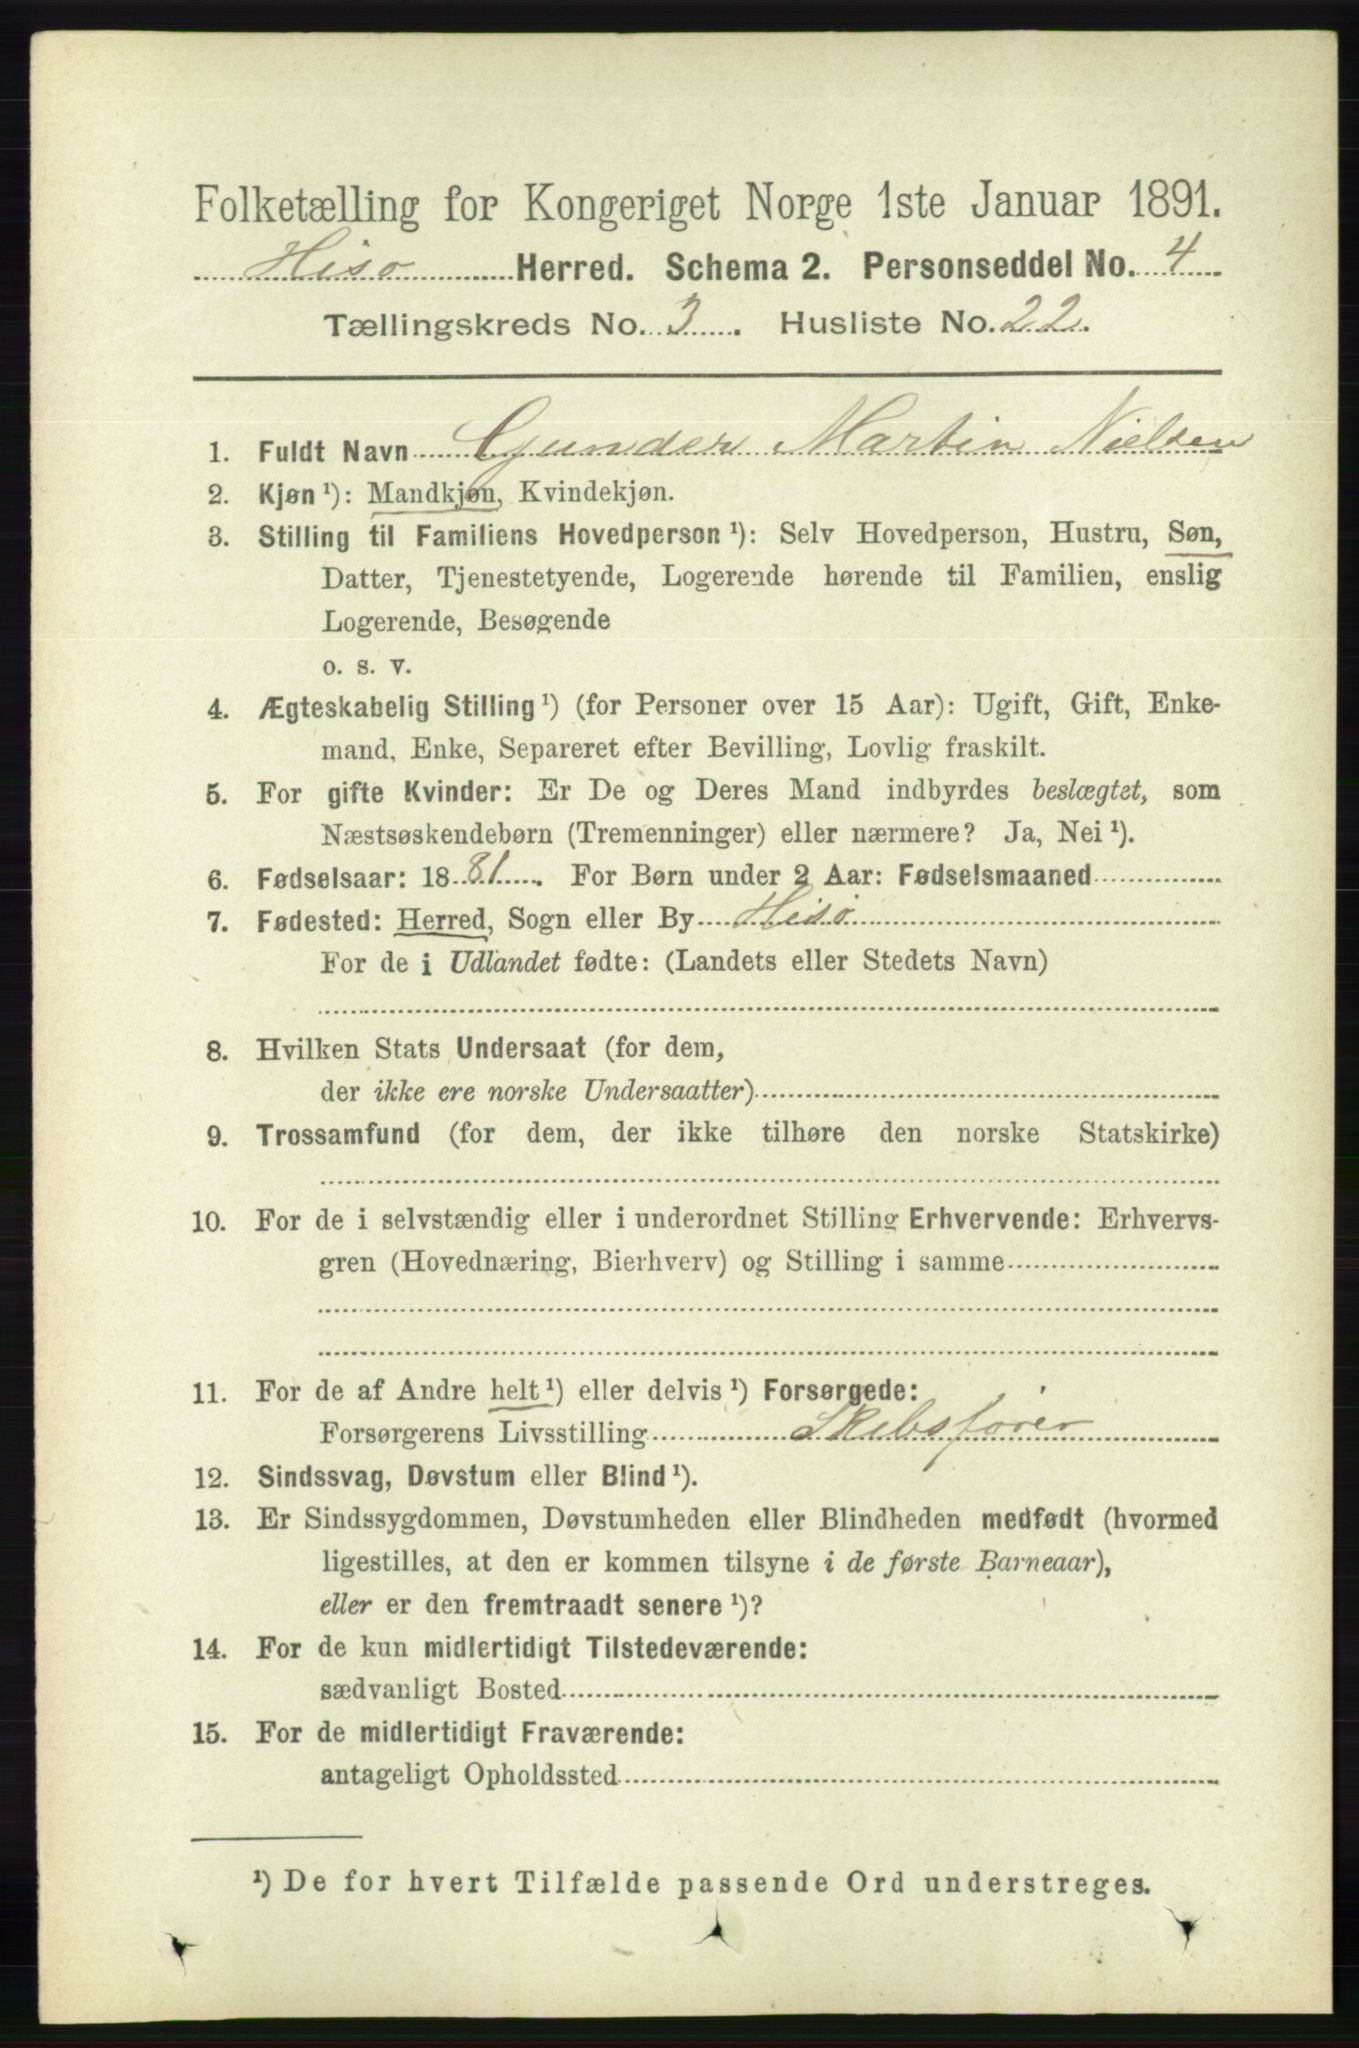 Folketælling for Kongeriget Norge 1ste Januar 1891.
Hisø Herred. Schema 2. Personseddel No. 4
Tællingskreds No. 3. Husliste No. 22.
1. Fuldt Navn Gunder Martin Nielsen
2. Kjøn ¹): Mandkjøn, Kvindekjøn.
3. Stilling til Familiens Hovedperson ¹): Selv Hovedperson, Hustru, Søn,
Datter, Tjenestetyende, Logerende hørende til Familien, enslig
Logerende, Besøgende
o. s. v.
4. Ægteskabelig Stilling ¹) (for Personer over 15 Aar): Ugift, Gift, Enke-
mand, Enke, Separeret efter Bevilling, Lovlig fraskilt.
5. For gifte Kvinder: Er De og Deres Mand indbyrdes beslægtet, som
Næstsøskendebørn (Tremenninger) eller nærmere? Ja, Nei ¹).
6. Fødselsaar: 1881. For Børn under 2 Aar: Fødselsmaaned
7. Fødested: Herred, Sogn eller By Hisø
For de i Udlandet fødte: (Landets eller Stedets Navn)
8. Hvilken Stats Undersaat (for dem,
der ikke ere norske Undersaatter)
9. Trossamfund (for dem, der ikke tilhøre den norske Statskirke)
10. For de i selvstændig eller i underordnet Stilling Erhvervende: Erhvervs-
gren (Hovednæring, Bierhverv) og Stilling i samme
11. For de af Andre helt ¹) eller delvis ¹) Forsørgede:
Forsørgerens Livsstilling Skibsfører
12. Sindssvag, Døvstum eller Blind ¹).
13. Er Sindssygdommen, Døvstumheden eller Blindheden medfødt (hvormed
ligestilles, at den er kommen tilsyne i de første Barneaar),
eller er den fremtraadt senere ¹)?
14. For de kun midlertidigt Tilstedeværende:
sædvanligt Bosted
15. For de midlertidigt Fraværende:
antageligt Opholdssted
¹) De for hvert Tilfælde passende Ord understreges.